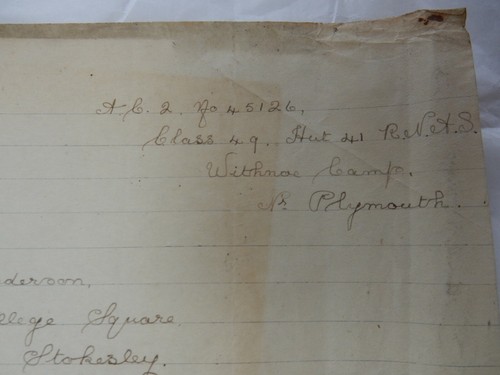 A.C. 2. No 45126,
Class 49, Hut 41 R.N.A.S.
Withnoe Camp,
Nr Plymouth.
derson,
llege Square
Stokesley.